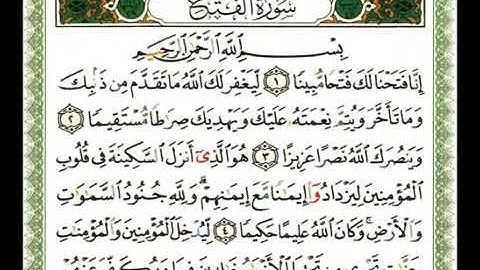 سُورَةُ الفَتْحِ
بِسْمِ اللَّهِ الرَّحْمَٰنِ الرَّحِيمِ
إِنَّا فَتَحْنَا لَكَ فَتْحًا مُّبِينًا ١ لِّيَغْفِرَ لَكَ اللَّهُ مَا تَقَدَّمَ مِن ذَنبِكَ
وَمَا تَأَخَّرَ وَيُتِمَّ نِعْمَتَهُ عَلَيْكَ وَيَهْدِيَكَ صِرَاطًا مُّسْتَقِيمًا ٢
وَيَنصُرَكَ اللَّهُ نَصْرًا عَزِيزًا ٣ هُوَ الَّذِي أَنزَلَ السَّكِينَةَ فِي قُلُوبِ
الْمُؤْمِنِينَ لِيَزْدَادُوا إِيمَانًا مَّعَ إِيمَانِهِمْ ۗ وَلِلَّهِ جُنُودُ السَّمَاوَاتِ
وَالْأَرْضِ ۚ وَكَانَ اللَّهُ عَلِيمًا حَكِيمًا ٤ لِّيُدْخِلَ الْمُؤْمِنِينَ وَالْمُؤْمِنَاتِ